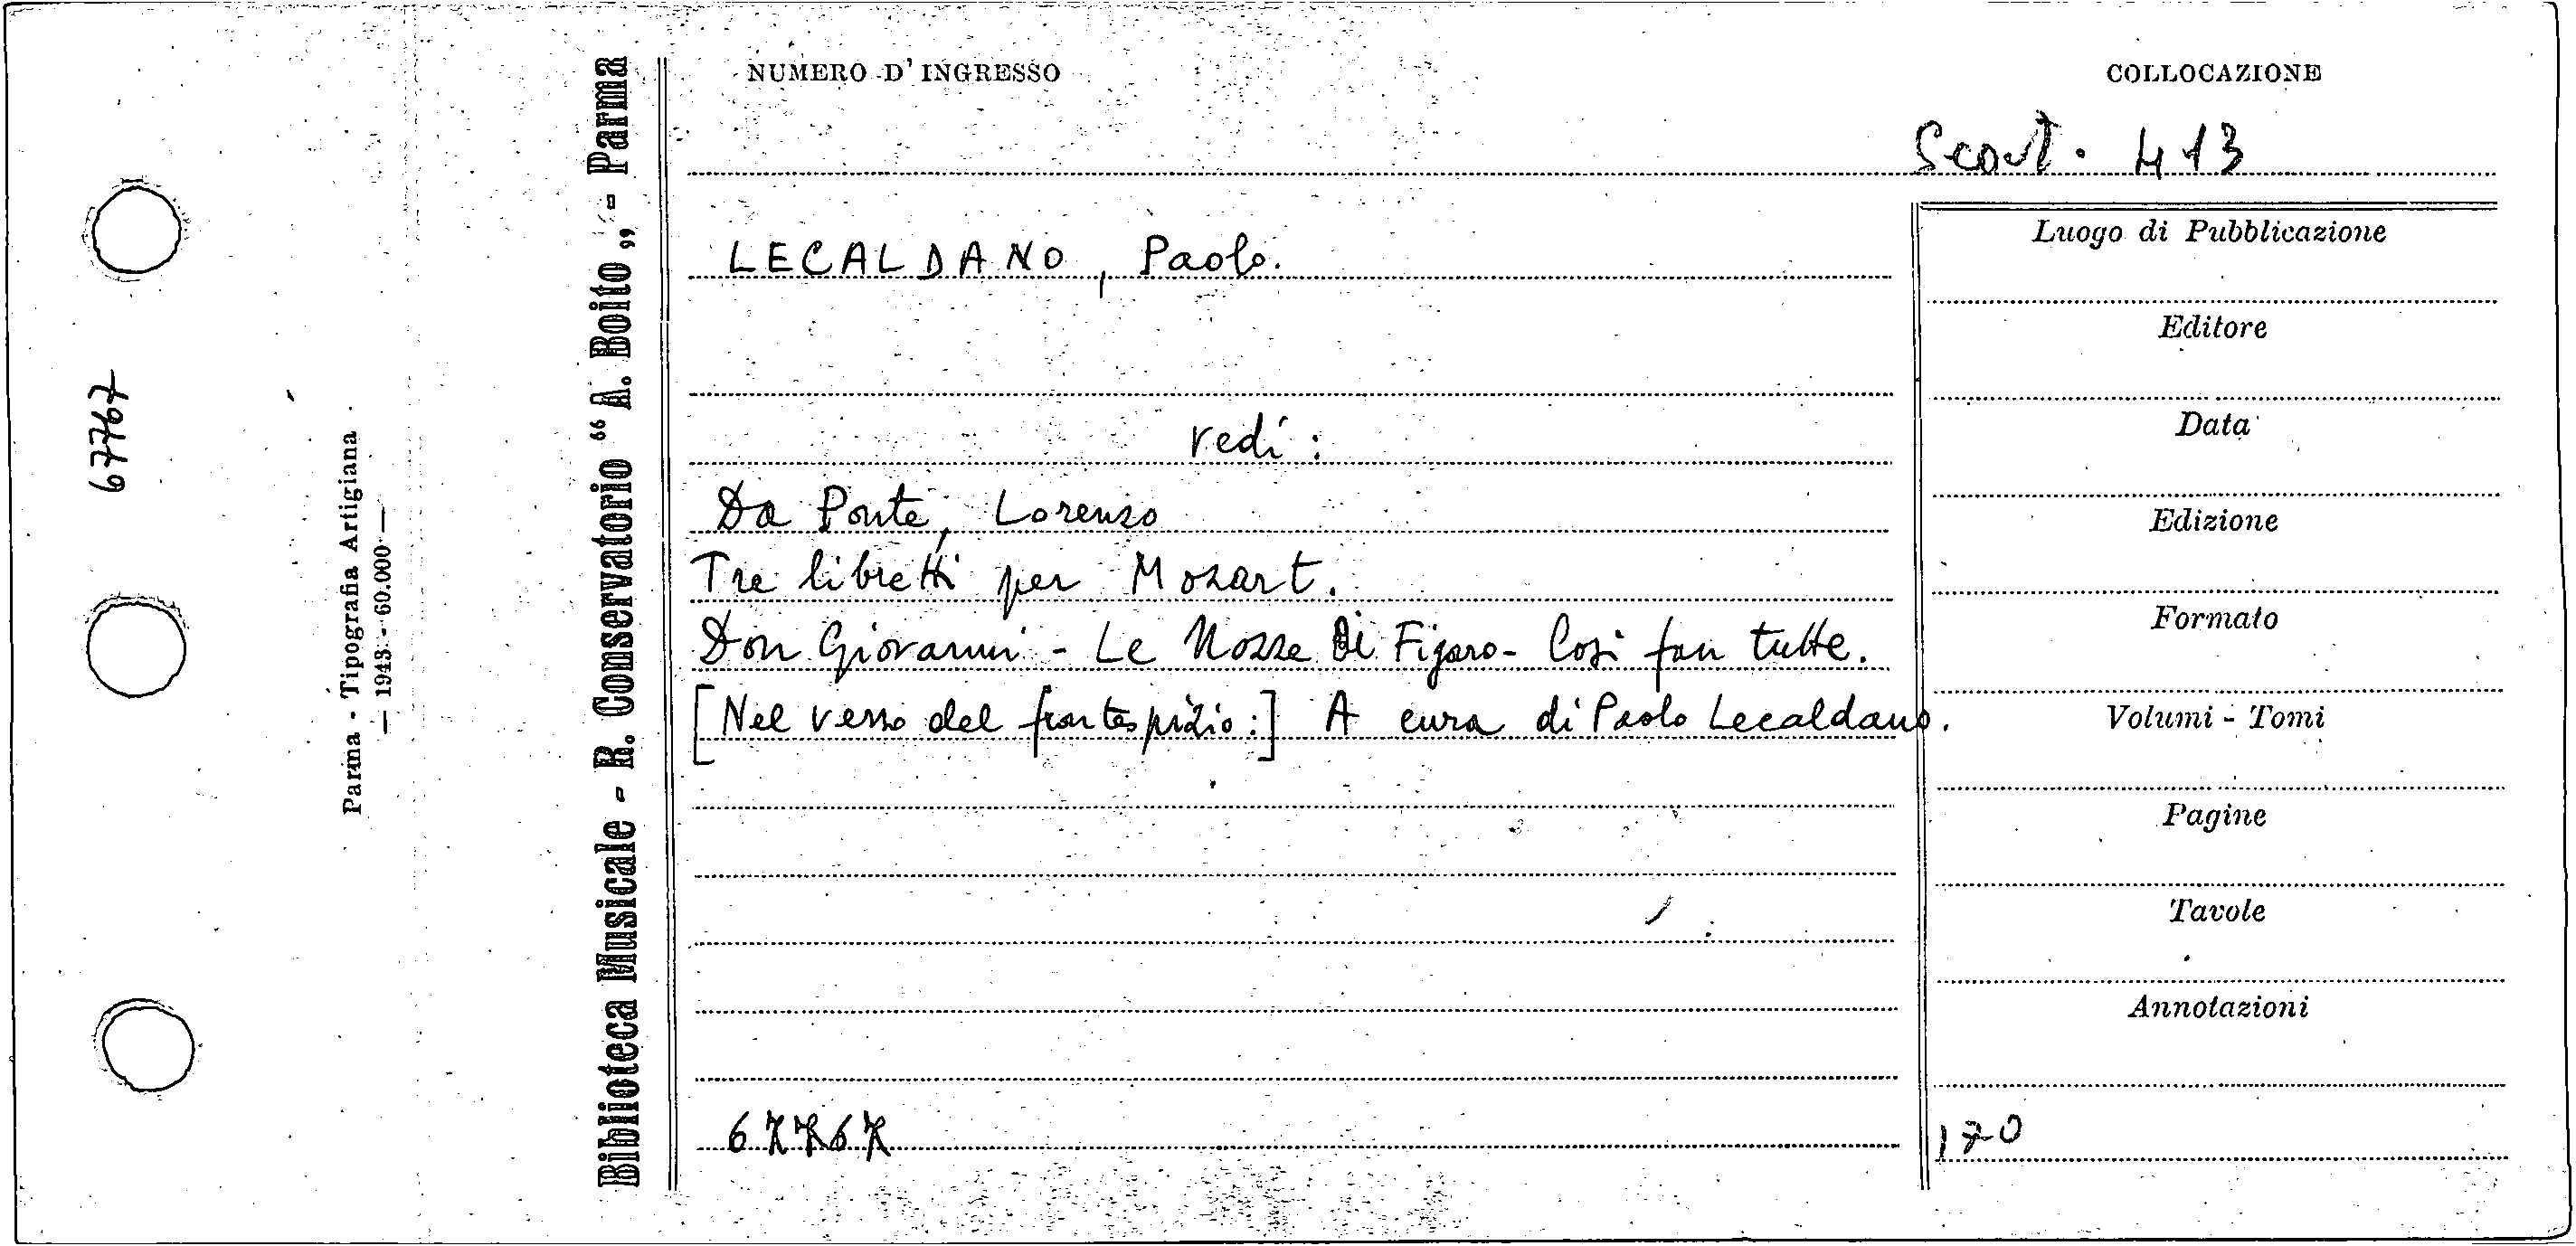 67767
Parma - Tipografia Artigiana
— 1943 - 60.000 —
Biblioteca Musicale - R. Conservatorio “A. Boito„ - Parma
NUMERO D'INGRESSO
COLLOCAZIONE
Scort. 413
LECALDANO, Paolo.
vedi:
Da Ponte, Lorenzo
Tre libretti per Mozart.
Don Giovanni - Le Nozze Di Figaro - Così fan tutte.
[Nel verso del frontespizio:] A cura di Paolo Lecaldano.
67767
Luogo di Pubblicazione
Editore
Data
Edizione
Formato
Volumi - Tomi
Pagine
Tavole
Annotazioni
170